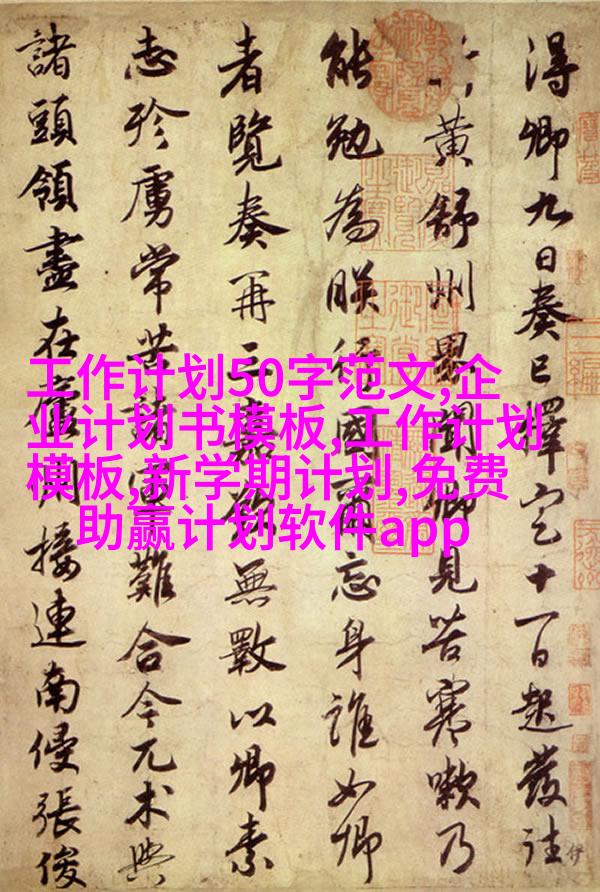 得卿九日奏已擇定十一日起發往
黃舒州界聞卿見苦寒嗽乃
能勉為朕行國爾忘身誰如卿
者覽奏再三嘉歎無斁以卿素
志殄虜常苦諸軍難合今兀朮與
諸頭領盡在廬州接連南侵張俊
工作计划50字范文,企
业计划书模板,工作计划
模板,新学期计划,免费
助赢计划软件app